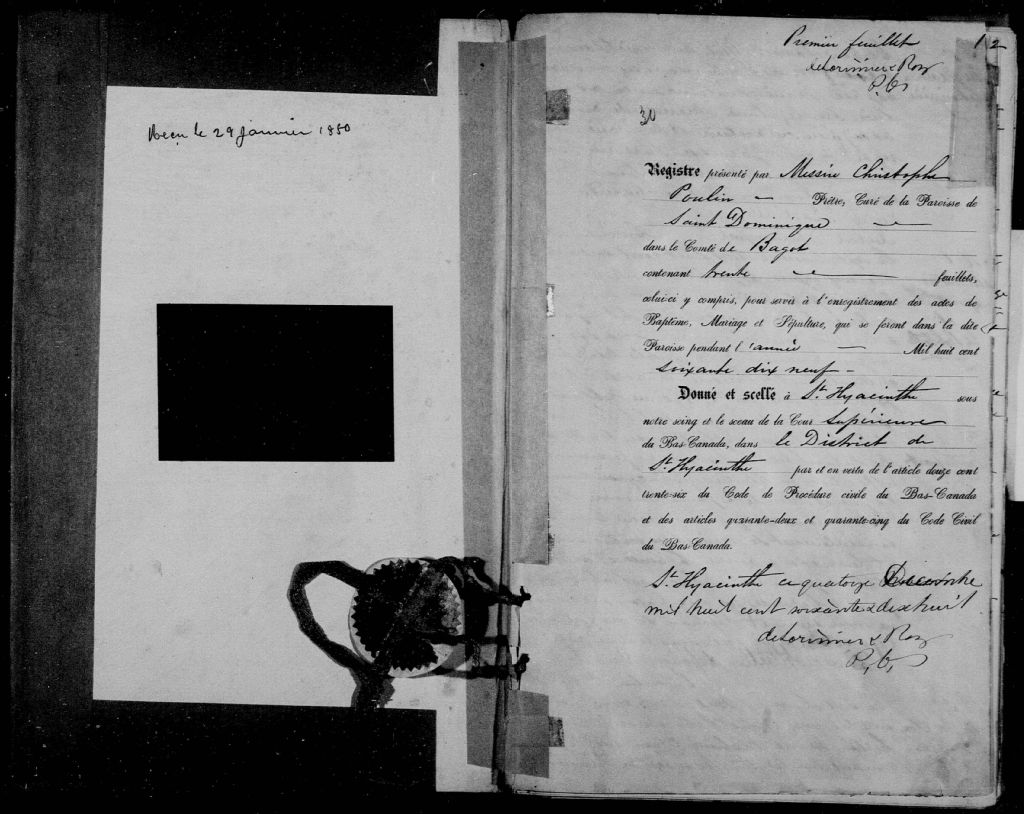 Reçu le 29 janvier 1880
1 2
Premier feuillet
delorimier & Roy
P.C.
30
Registre présenté par Messire Christophe
Poulin – Prêtre, Curé de la Paroisse de
Saint Dominique —
dans le Comté de Bagot
contenant trente — feuillets,
celui-ci y compris, pour servir à l'enregistrement des actes de
Baptême, Mariage et Sépulture, qui se feront dans la dite
Paroisse pendant l'année — Mil huit cent
soixante dix neuf –
Donné et scellé à St. Hyacinthe sous
notre seing et le sceau de la Cour Supérieure
du Bas-Canada, dans le District de
St. Hyacinthe par et en vertu de l'article douze cent
trente-six du Code de Procédure civile du Bas-Canada
et des articles quarante-deux et quarante-cinq du Code Civil
du Bas-Canada.
St. Hyacinthe ce quatorze Décembre
mil huit cent soixante & dix huit
delorimier & Roy
P.C.